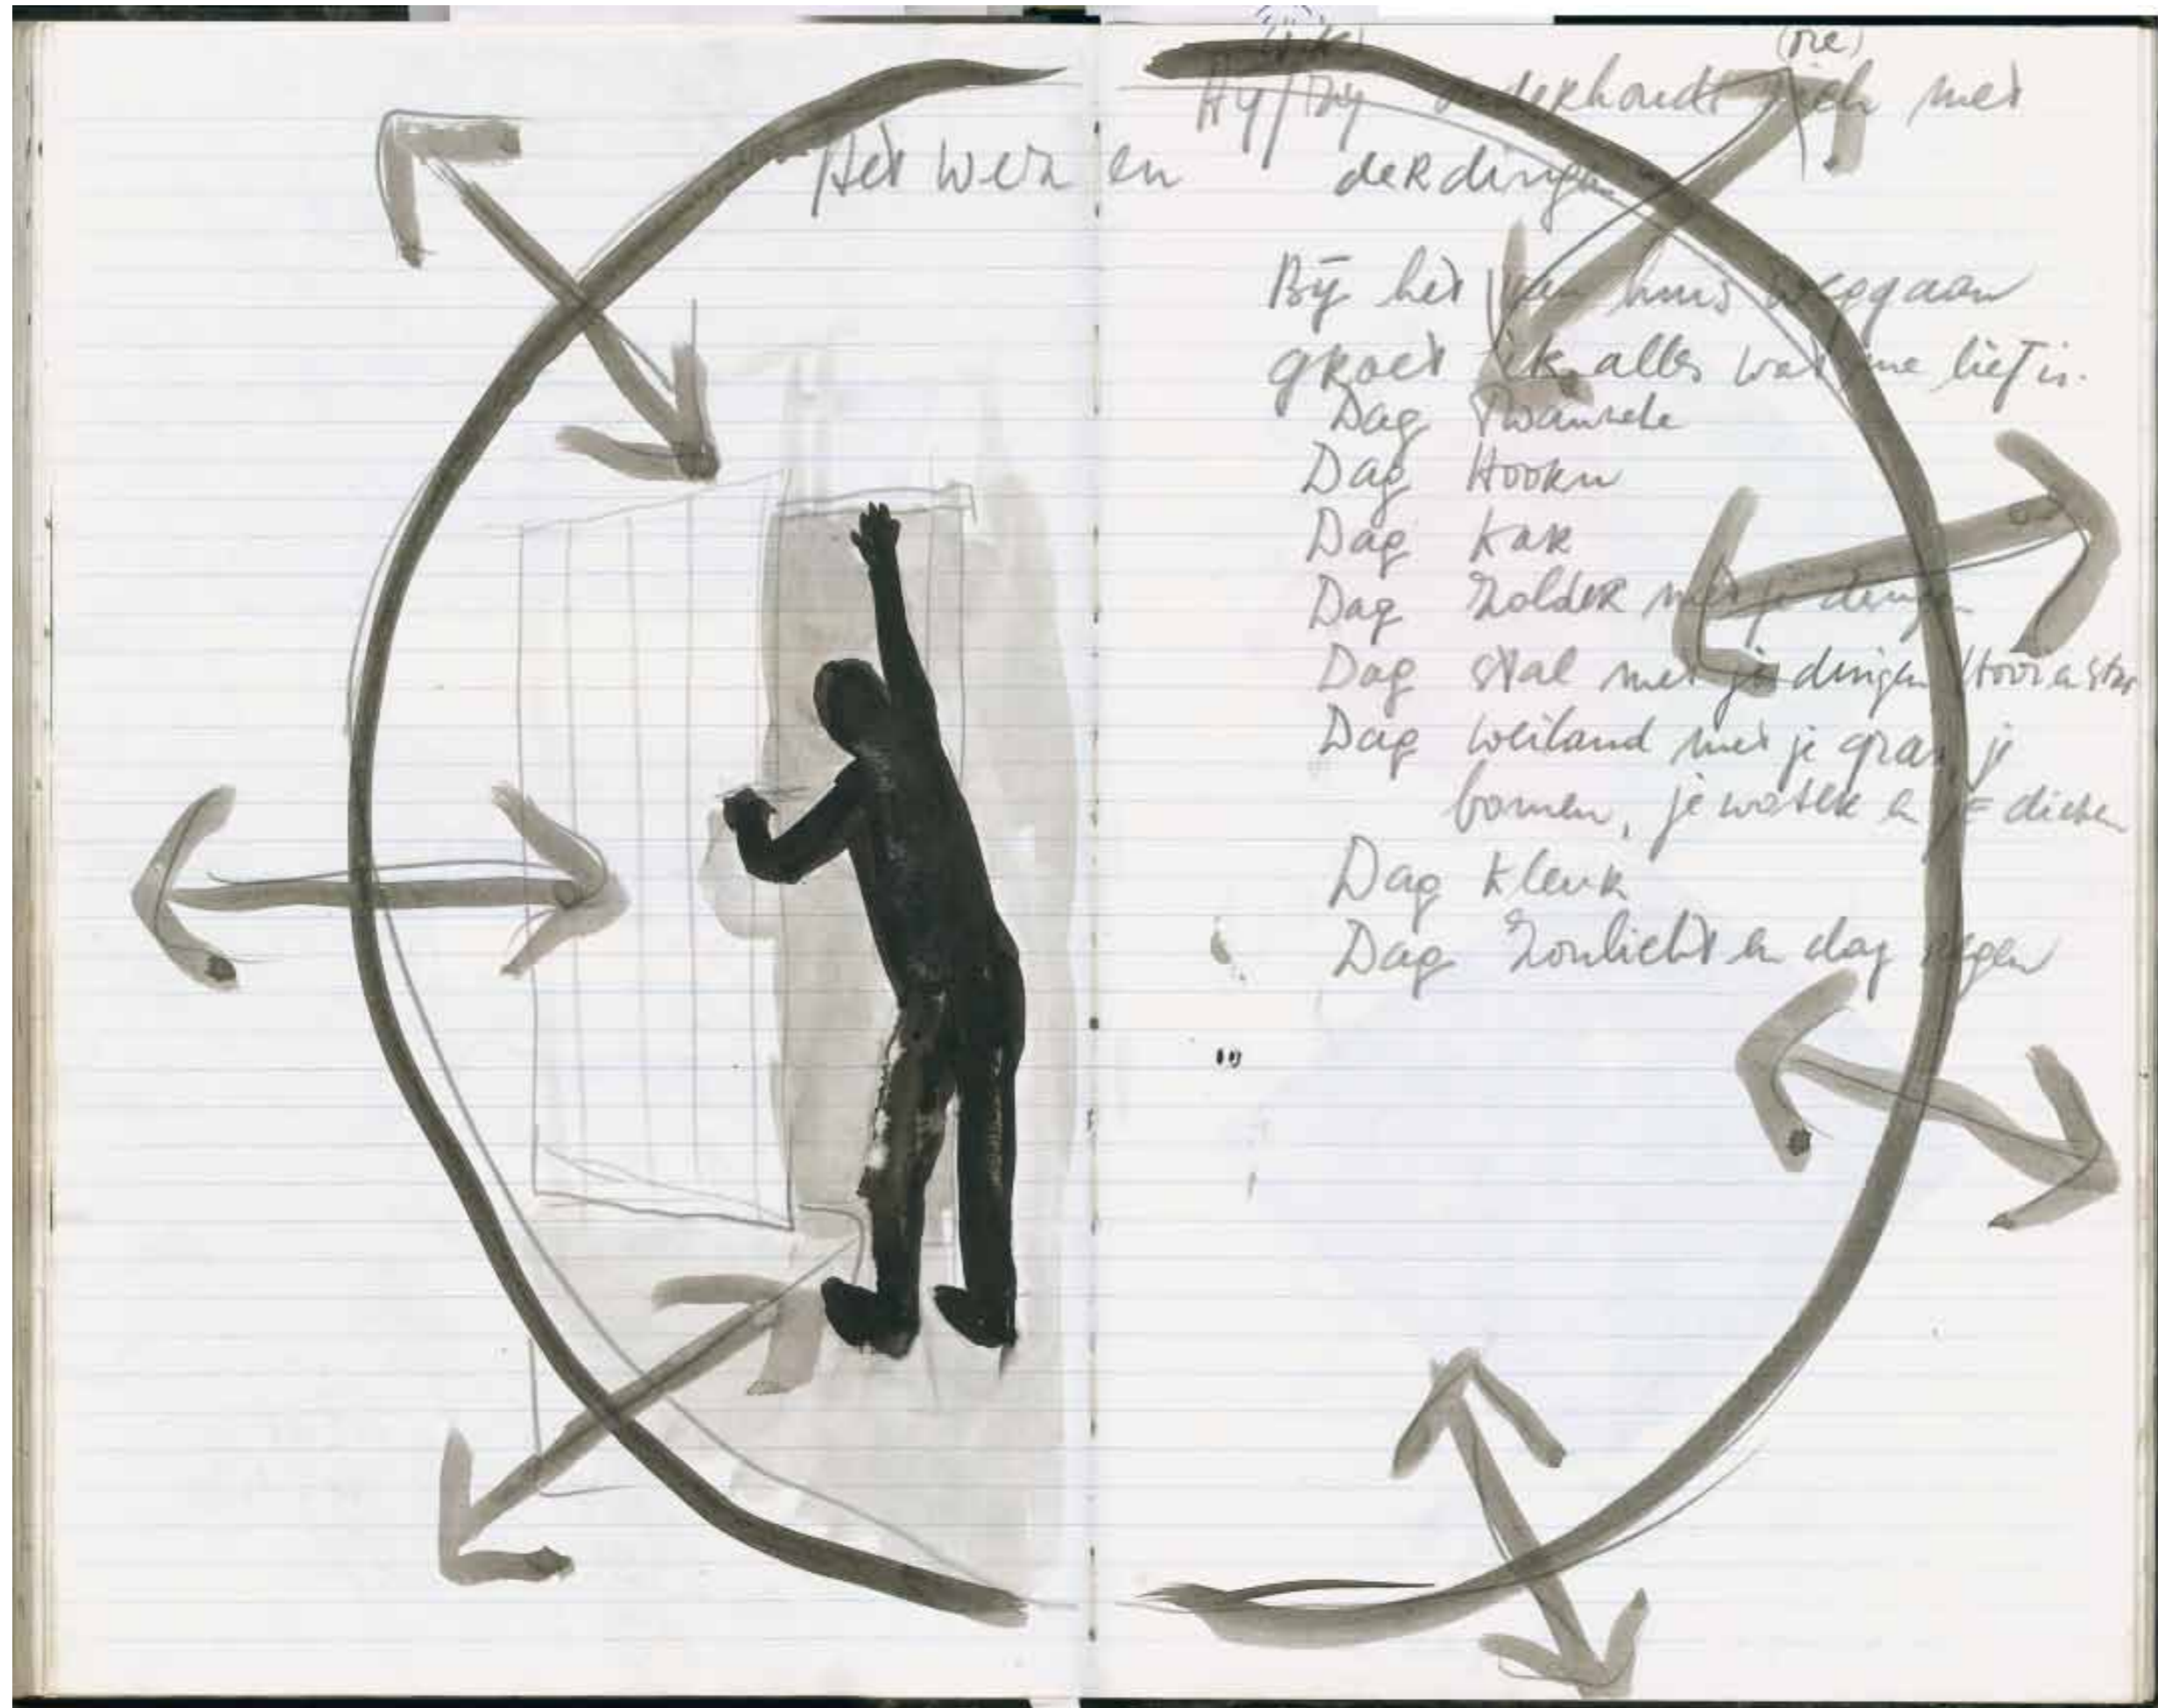 (ik) (me)
Hij/Zij onderhoudt zich met
Het wezen der dingen
Bij het van huis weggaan
groet ik alles wat me lief is.
Dag
Dag Hoorn
Dag Kar
Dag Zolder met je dingen
Dag stal met je dingen Hooi en stro
Dag weiland met je gras je
bomen, je water en je dieren
Dag kleur
Dag Zonlicht en dag regen